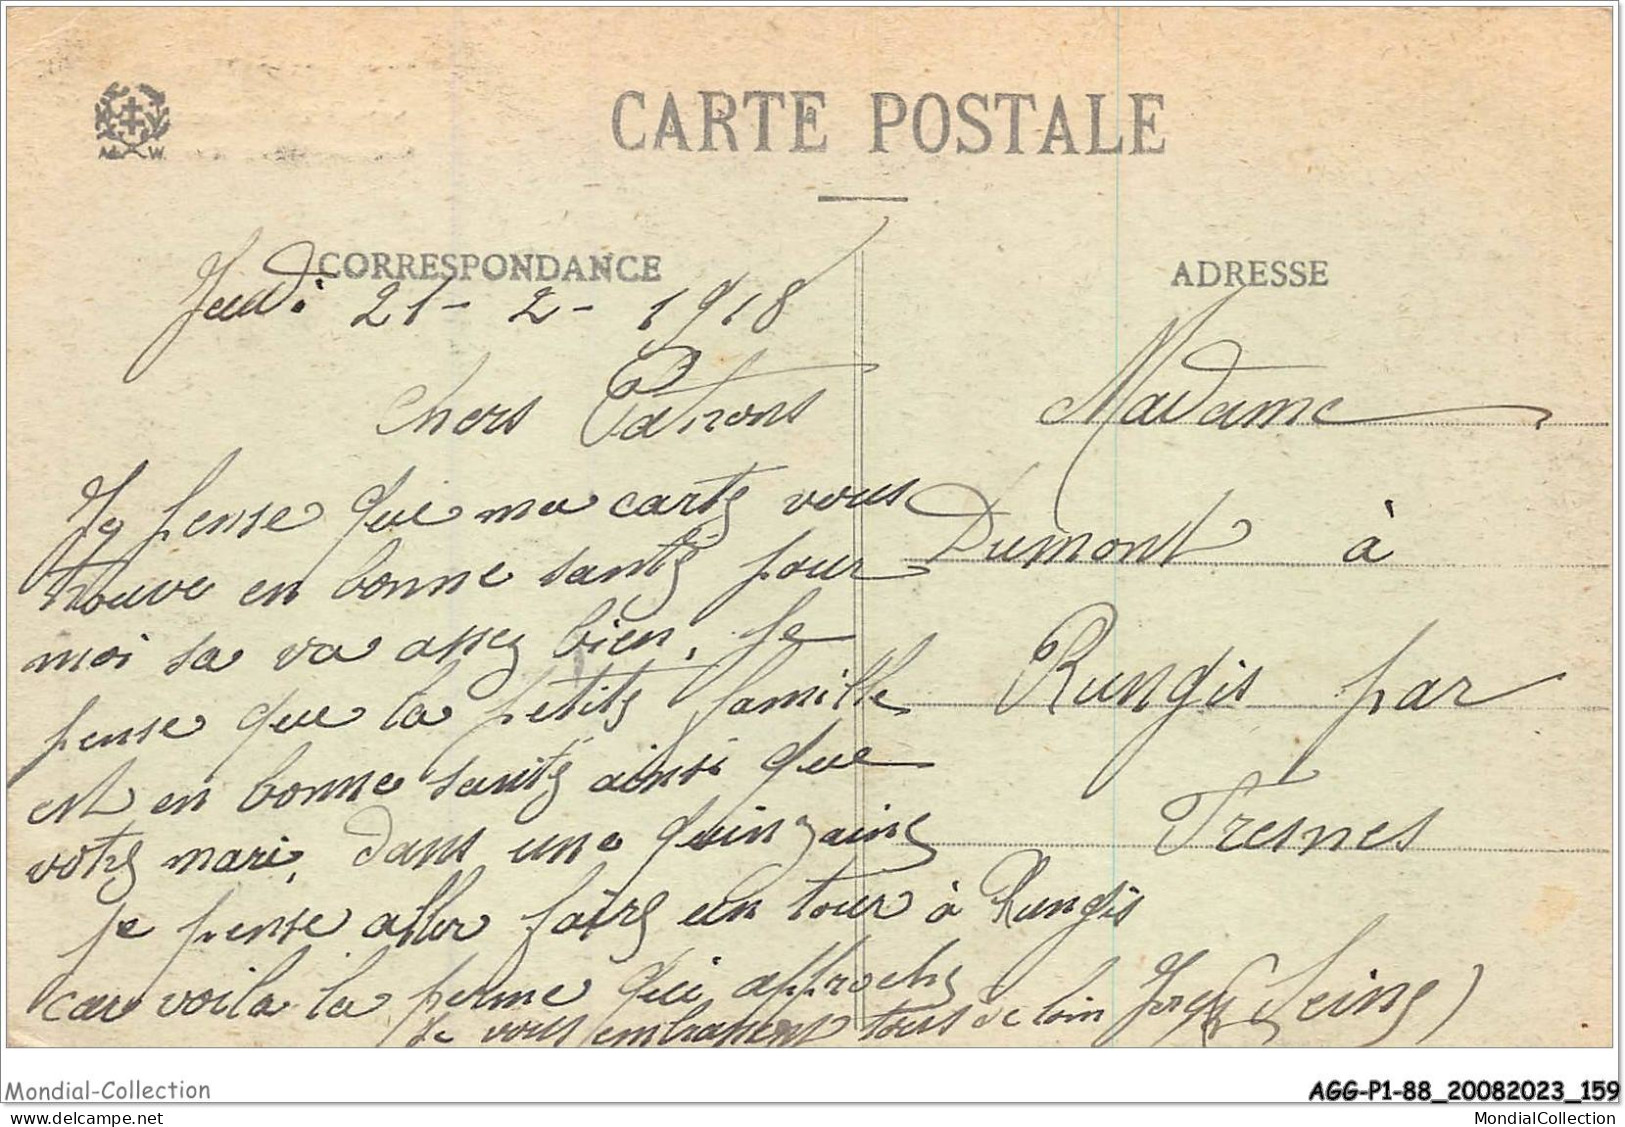 CARTE POSTALE
CORRESPONDANCE
Jeudi 21-2-1918
Chers Patrons
Je pense que ma carte vous
trouve en bonne santé pour
moi sa va assez bien. Je
pense que la petite famille
est en bonne santé ainsi que
votre mari, dans une quinzaine
je pense aller faire un tour à Rungis
car voila la perme qui approche
Je vous embrassent tous de loin
ADRESSE
Madame
Dumont à
Rungis par
Fresnes
Seine)
Mondial-Collection
AGG-P1-88_20082023_159
www.delcampe.net
MondialCollection